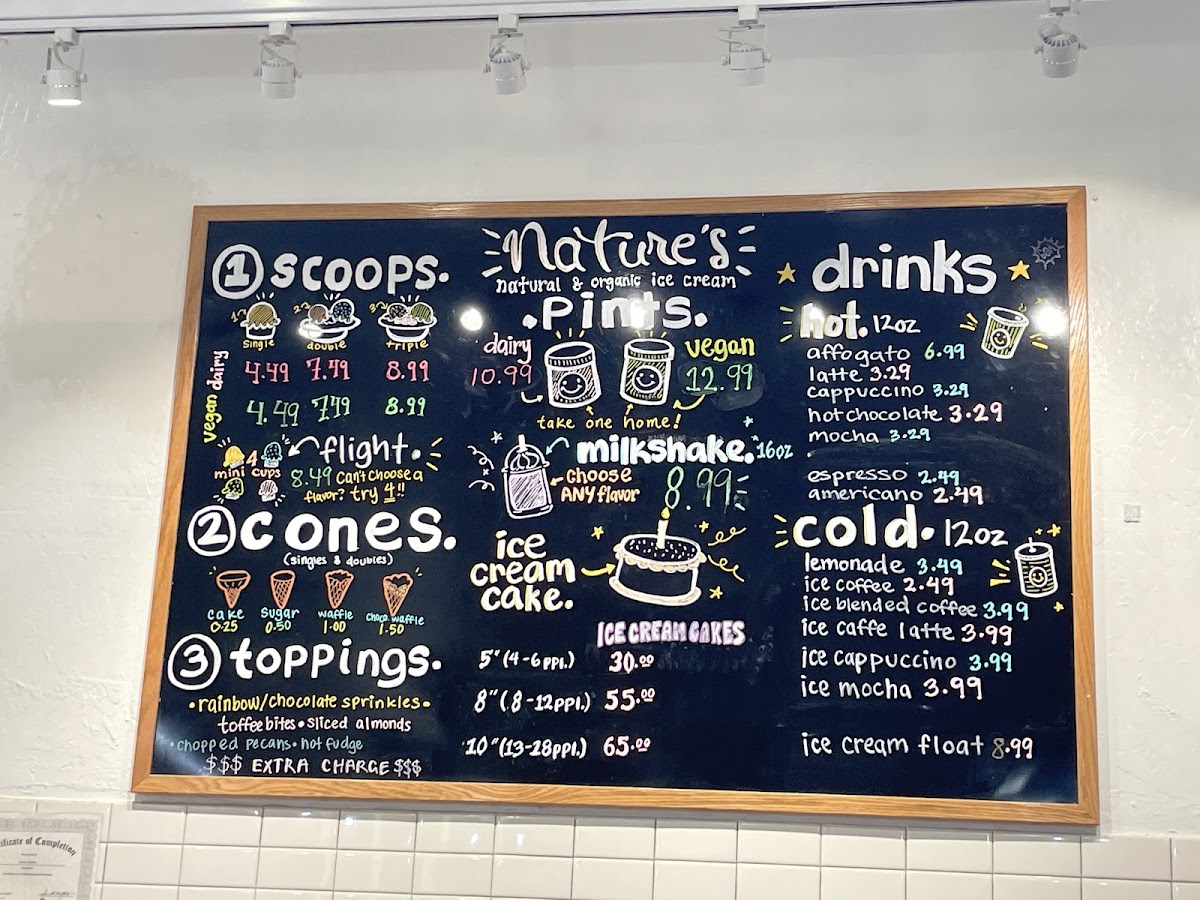 Nature's
natural & organic ice cream
1 scoops.
1 2 3
single double triple
dairy 4.49 7.49 8.99
vegan 4.49 7.49 8.99
4 mini cups
flight.
8.49 Can't choose a
flavor? try 4!!
2 cones.
(singles & doubles)
cake sugar waffle choco. waffle
0.25 0.50 1.00 1.50
3 toppings.
• rainbow/chocolate sprinkles •
toffee bites • sliced almonds
• chopped pecans • hot fudge
$$$ EXTRA CHARGE $$$
.pints.
dairy vegan
10.99 12.99
take one home!
milkshake. 16oz
choose
ANY flavor
8.99
ice
cream
cake.
ICE CREAM CAKES
5" (4-6 ppl.) 30.00
8" (8-12ppl.) 55.00
10" (13-18ppl.) 65.00
drinks
hot. 12oz
affogato 6.99
latte 3.29
cappuccino 3.29
hot chocolate 3.29
mocha 3.29
espresso 2.49
americano 2.49
cold. 12oz
lemonade 3.49
ice coffee 2.49
ice blended coffee 3.99
ice caffe latte 3.99
ice cappuccino 3.99
ice mocha 3.99
ice cream float 8.99
Certificate of Completion